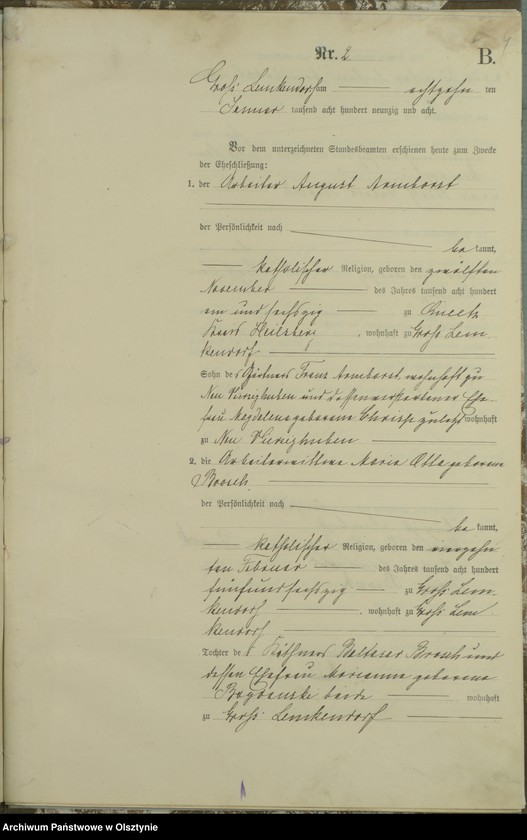 Nr. 2
B.
4
Groß Lemkendorf am achtzehn ten
Januar tausend acht hundert neunzig und acht.
Vor dem unterzeichneten Standesbeamten erschienen heute zum Zwecke
der Eheschließung:
1. der Arbeiter August Armborst
der Persönlichkeit nach
be kannt,
katholischer Religion, geboren den zwölften
November des Jahres tausend acht hundert
ein und sechszig zu
Kreis Heilsberg, wohnhaft zu Groß Lem-
kendorf
Sohn des Gärtners Franz Armborst, wohnhaft zu
Neu Vierzighuben und dessen verstorbener Ehe-
frau Magdalena geborene zuletzt wohnhaft
zu Neu Vierzighuben
2. die Arbeiterwittwe Maria Otta geborene
Brosch
der Persönlichkeit nach
be kannt,
katholischer Religion, geboren den vierzehn
ten Februar des Jahres tausend acht hundert
fünfundsechszig zu Groß Lem-
kendorf, wohnhaft zu Groß Lem-
kendorf
Tochter des Käthners Baltasar Brosch und
dessen Ehefrau Marianna geborene
beide wohnhaft
zu Groß Lemkendorf
Archiwum Państwowe w Olsztynie